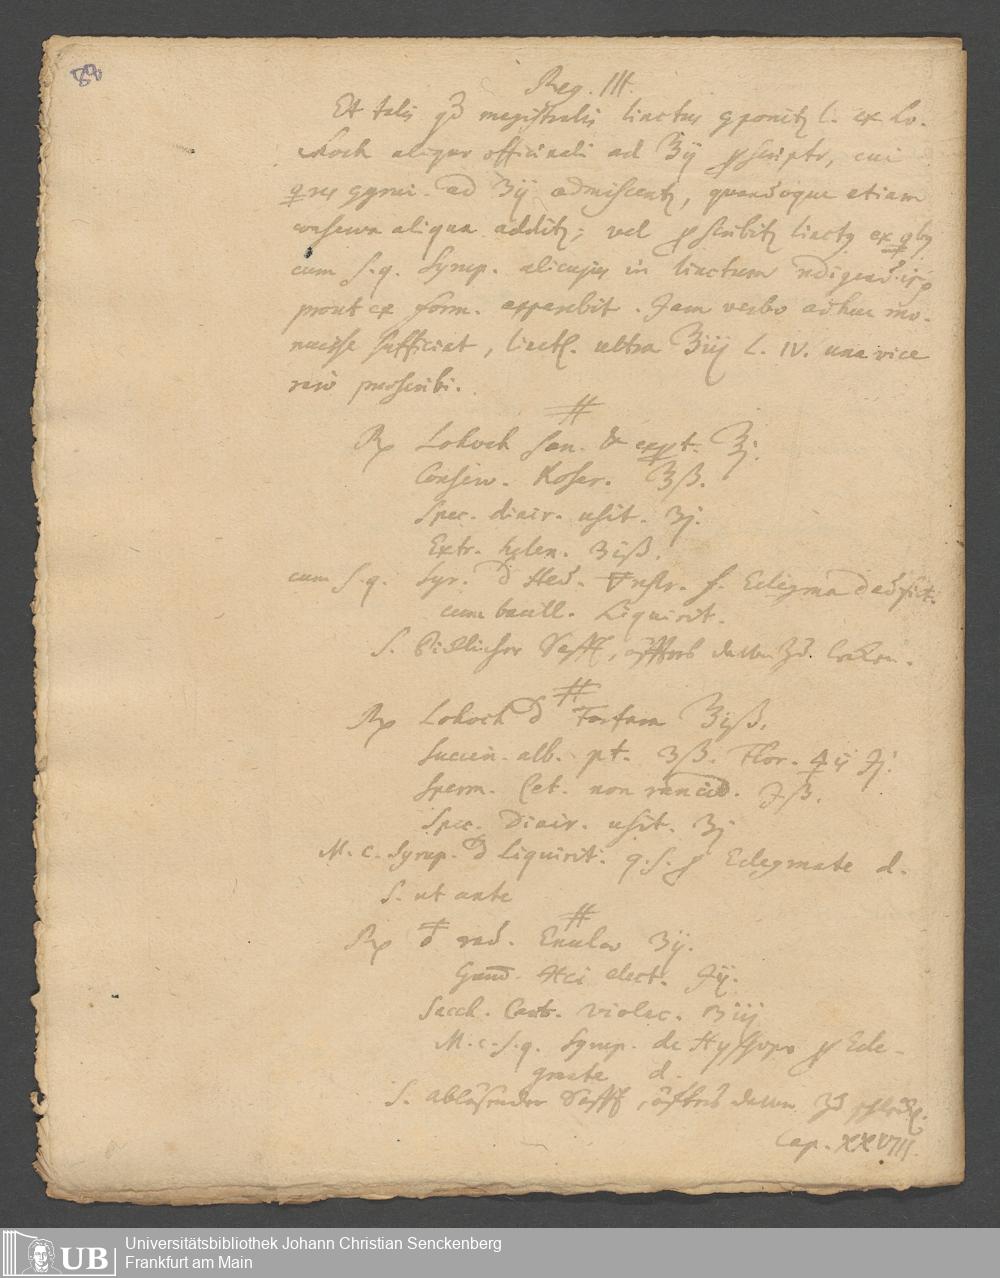 Reg. III.
Et talis qd magistralis linctus gponitz l. ex Lo-
hoch aliquo officinali ad ℥ij pscripto, cui
res ad ʒij admiscentz, quandoque etiam
conserva aliqua additz; vel pscribitz linctq
cum s. q. Syrup. alicujus in linctum
prout ex form. apparebit. Jam verbo adhuc mo-
nuisse sufficiat, linct. ultra ℥iij l. IV. una vice
raro praescribi.
#
Rp Lohoch san. & expt. ℥j.
Conserv. Rosar. ℥ß.
Spec. diair. usit. ʒj.
Extr. helen. ʒiß.
cum s. q. Syr. d Hed. f. Eclegma
cum bacill. Liquirit.
S. Säfft, davon zu lecken.
#
Rp Lohoch d Farfara ℥ijß.
Succin. alb. pt. ʒß. Flor.
Sperm. Cet. non rancid. ℈ß.
Spec. Diair. usit. ʒj
M. c. Syrup. d Liquirit. q. s. p Eclegmate d.
S. ut ante
#
Rp rad. Enulae ʒij.
elect. ℈ij.
Sacch. Cant. violac. ʒiij
M. c. s. q. Syrup. de Hyssopo p Ecle-
gmate d.
S. Säfft, davon zu
Cap. XXVIII.
UB Universitätsbibliothek Johann Christian Senckenberg
Frankfurt am Main